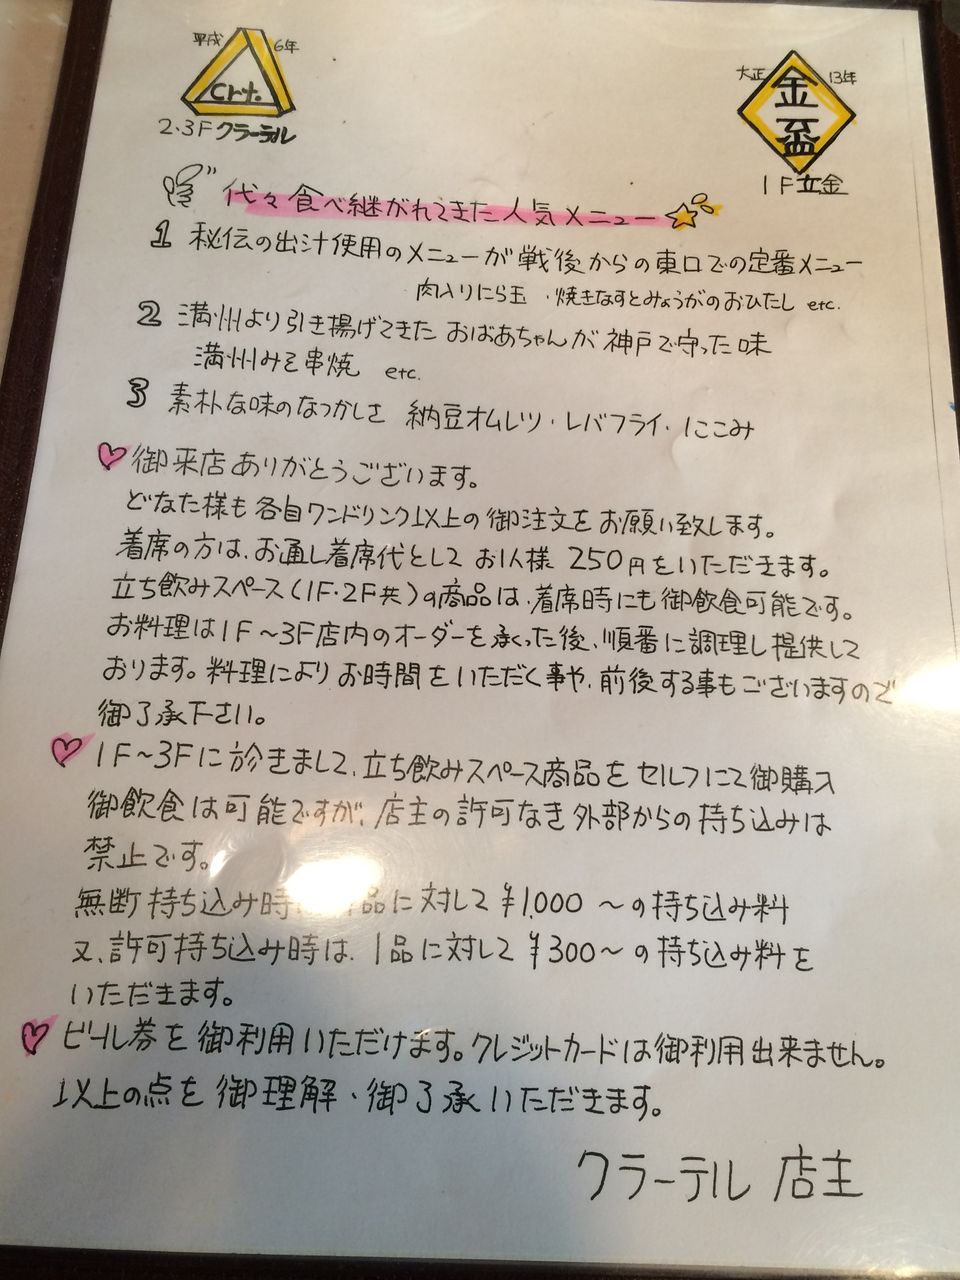 平成 6年
Crt.
2・3F クラーテル
大正 13年
金盃
1F 立金
代々食べ継がれてきた人気メニュー
1 秘伝の出汁使用のメニューが戦後からの東口での定番メニュー
肉入りにら玉 ・焼きなすとみょうがのおひたし etc.
2 満州より引き揚げてきた おばあちゃんが神戸で守った味
満州みそ串焼 etc.
3 素朴な味のなつかしさ 納豆オムレツ・レバフライ・にこみ
御来店ありがとうございます。
どなた様も各自ワンドリンク以上の御注文をお願い致します。
着席の方は、お通し着席代として お1人様 250円をいただきます。
立ち飲みスペース(1F・2F共)の商品は、着席時にも御飲食可能です。
お料理は1F~3F店内のオーダーを承った後、順番に調理し提供して
おります。料理によりお時間をいただく事や、前後する事もございますので
御了承下さい。
1F~3Fに於きまして、立ち飲みスペース商品をセルフにて御購入
御飲食は可能ですが、店主の許可なき外部からの持ち込みは
禁止です。
無断持ち込み時 品に対して¥1,000~の持ち込み料
又、許可持ち込み時は、1品に対して¥300~の持ち込み料を
いただきます。
ビール券を御利用いただけます。クレジットカードは御利用出来ません。
以上の点を御理解・御了承いただきます。
クラーテル 店主